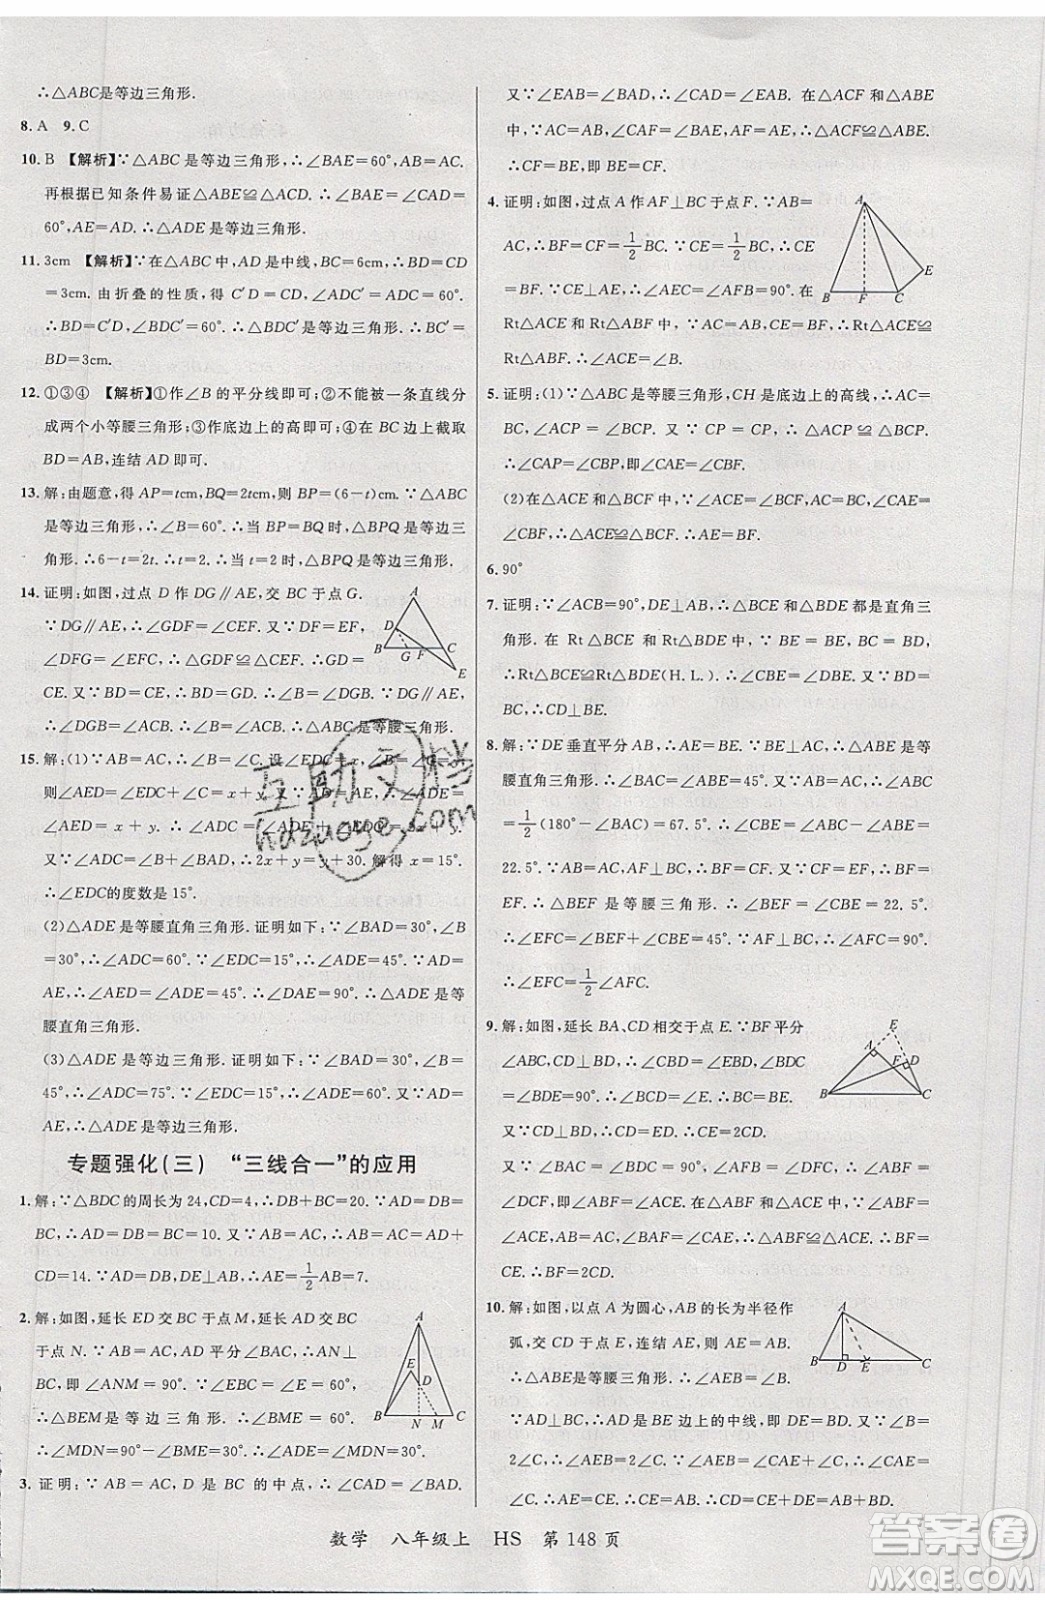 ∴△ABC是等边三角形.
8. A  9. C
10. B 【解析】∵△ABC是等边三角形,∴∠BAE=60°,AB=AC.
再根据已知条件易证△ABE≌△ACD.∴∠BAE=∠CAD=
60°,AE=AD.∴△ADE是等边三角形.
11. 3cm 【解析】∵在△ABC中,AD是中线,BC=6cm,∴BD=CD
=3cm. 由折叠的性质,得 C′D=CD=3cm,∠ADC′=∠ADC=60°.
∴BD=C′D,∠BDC′=60°.∴△BDC′是等边三角形.∴BC′=
BD=3cm.
12. ①③④ 【解析】①作∠B的平分线即可;②不能被一条直线分
成两个小等腰三角形;③作底边上的高即可;④在BC边上截取
BD=AB,连结AD即可.
13. 解:由题意,得AP=tcm,BQ=2tcm,则BP=(6-t)cm.∵△ABC
是等边三角形,∴∠B=60°.∴当BP=BQ时,△BPQ是等边三
角形.∴6-t=2t.∴t=2.∴当t=2时,△BPQ是等边三角形.
14. 证明:如图,过点D作DG∥AE,交BC于点G.
∵DG∥AE,∴∠GDF=∠CEF.又∵DF=EF,
∠DFG=∠EFC,∴△GDF≌△CEF.∴GD=
CE.又∵BD=CE,∴BD=GD.∴∠B=∠DGB.又∵DG∥AE,
∴∠DGB=∠ACB.∴∠B=∠ACB.∴△ABC是等腰三角形.
A
D
B
G
F
C
E
15. 解:(1)∵AB=AC,∴∠B=∠C.设∠EDC=x,∠B=∠C=y,
则∠AED=∠EDC+∠C=x+y.又∵AD=AE,∴∠ADE=
∠AED=x+y.
又∵∠ADC=∠B+∠BAD,∴2x+y=y+30.解得x=15°.
∴∠EDC的度数是15°.
(2)△ADE是等腰直角三角形.证明如下:∵∠BAD=30°,∠B
=30°,∴∠ADC=60°.∵∠EDC=15°,∴∠ADE=45°.又∵AD
=AE,∴∠AED=∠ADE=45°.∴∠DAE=90°.∴△ADE是等
腰直角三角形.
(3)△ADE是等边三角形.证明如下:∵∠BAD=30°,∠B=
45°,∴∠ADC=75°.∵∠EDC=15°,∴∠ADE=60°.又∵AD=
AE,∴△ADE是等边三角形.
专题强化(三) “三线合一”的应用
1. 解:∵△BDC的周长为24,CD=4,∴DB+BC=20.又∵BD=
BC,∴AD=DB=BC=10.又∵AB=AC,∴AB=AC=AD+
CD=14.∵AD=DB,DE⊥AB,∴AE=1/2AB=7.
2. 解:如图,延长ED交BC于点M,延长AD交BC
于点N.∵AB=AC,AD平分∠BAC,∴AN⊥
BC.∴∠ANM=90°.∵∠EBC=∠E=60°,
∴△BEM是等边三角形.∴∠BME=60°.
∴∠MDN=90°-∠BME=30°.∴∠ADE=∠MDN=30°.
A
E
D
B
N
M
C
3. 证明:∵AB=AC,D是BC的中点,∴∠CAD=∠BAD.
又∵∠EAB=∠BAD,∴∠CAD=∠EAB.在△ACF和△ABE
中,∵AC=AB,∠CAF=∠BAE,AF=AE,∴△ACF≌△ABE.
∴CF=BE,即BE=CF.
4. 证明:如图,过点A作AF⊥BC于点F.∵AB=
AC,∴BF=CF=1/2BC.∵CE=1/2BC,∴CE
=BF.∵CE⊥AE,∴∠AEC=∠AFB=90°.在
Rt△ACE和Rt△ABF中,∴Rt△ACE≌
Rt△ABF.∴∠ACE=∠B.
A
E
B
F
C
5. 证明:(1)∵△ABC是等腰三角形,CH是底边上的高线,∴AC=
BC,∠ACP=∠BCP.又∵CP=CP,∴△ACP≌△BCP.
∴∠CAP=∠CBP,即∠CAE=∠CBF.
(2)在△ACE和△BCF中,∵∠ACE=∠BCF,AC=BC,∠CAE=
∠CBF,∴△ACE≌△BCF.∴AE=BF.
6. 90°
7. 证明:∵∠ACB=90°,DE⊥AB,∴△BCE和△BDE都是直角三
角形.在Rt△BCE和Rt△BDE中,∵BE=BE,BC=BD,
∴Rt△BCE≌Rt△BDE(H.L.).∴∠CBE=∠DBE.又∵BD=
BC,∴CD⊥BE.
8. 解:∵DE垂直平分AB,∴AE=BE.又∵BE⊥AC,∴△ABE是等
腰直角三角形.∴∠BAC=∠ABE=45°.又∵AB=AC,∴∠ABC
=1/2(180°-∠BAC)=67.5°.∴∠CBE=∠ABC-∠ABE=
22.5°.∵AB=AC,AF⊥BC,∴BF=CF.∴EF=1/2BC=BF=
CF.∴△BEF是等腰三角形.∴∠BEF=∠CBE=22.5°.
∴∠EFC=∠BEF+∠CBE=45°.∵AF⊥BC,∴∠AFC=90°.
∴∠EFC=1/2∠AFC.
9. 解:如图,延长BA、CD相交于点E.∵BF平分
∠ABC,CD⊥BD,∴∠CBD=∠EBD,∠BDC
=∠BDE=90°.∴∠BCE=∠E.∴BC=BE.
又∵CD⊥BD,∴CD=DE.∴CE=2CD.
又∵∠BAC=∠BDC=90°,∠AFB=∠CFD,∴∠ABF=
∠DCF,即∠ABF=∠ACE.在△ABF和△ACE中,∵∠ABF=
∠ACE,AB=AC,∠BAF=∠CAE=90°,∴△ABF≌△ACE.∴BF=
CE.∴BF=2CD.
E
A
F
D
B
C
10. 解:如图,以点A为圆心,AB的长为半径作
弧,交CD于点E,连结AE,则AE=AB.
∴△ABE是等腰三角形.∴∠AEB=∠B.又
∵AD⊥BC,∴AD是BE边上的中线,即DE=BD.又∵∠B=
2∠C,∴∠AEB=2∠C.又∵∠AEB=∠C+∠CAE,∴∠CAE=
∠C.∴AE=CE.∴CD=CE+DE=AB+BD.
A
B
D
E
C
数学 八年级上 HS 第148页
互助文档
huzuoye.com
答案圈
MXQE.COM